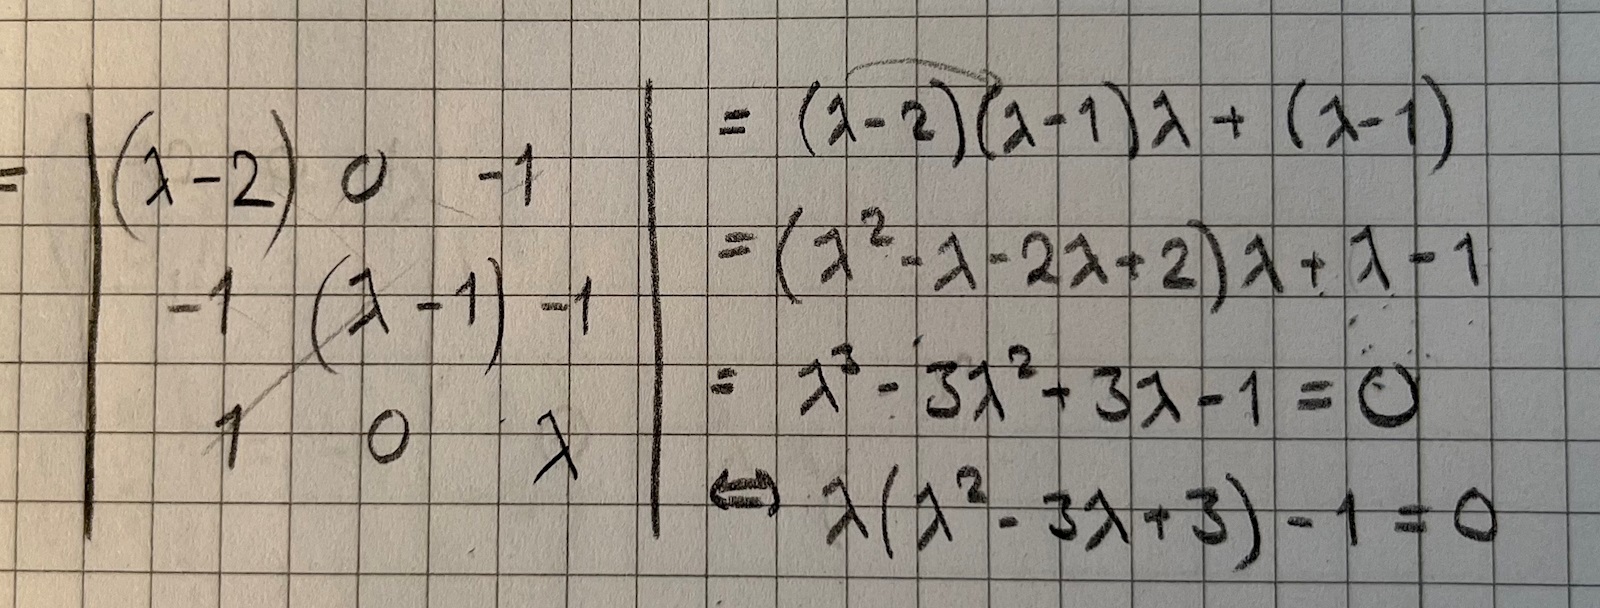 = | (λ-2) 0 -1 |
| -1 (λ-1) -1 |
| 1 0 λ |
= (λ-2)(λ-1)λ + (λ-1)
= (λ²-λ-2λ+2)λ + λ-1
= λ³ - 3λ² + 3λ - 1 = 0
⇔ λ(λ² - 3λ + 3) - 1 = 0